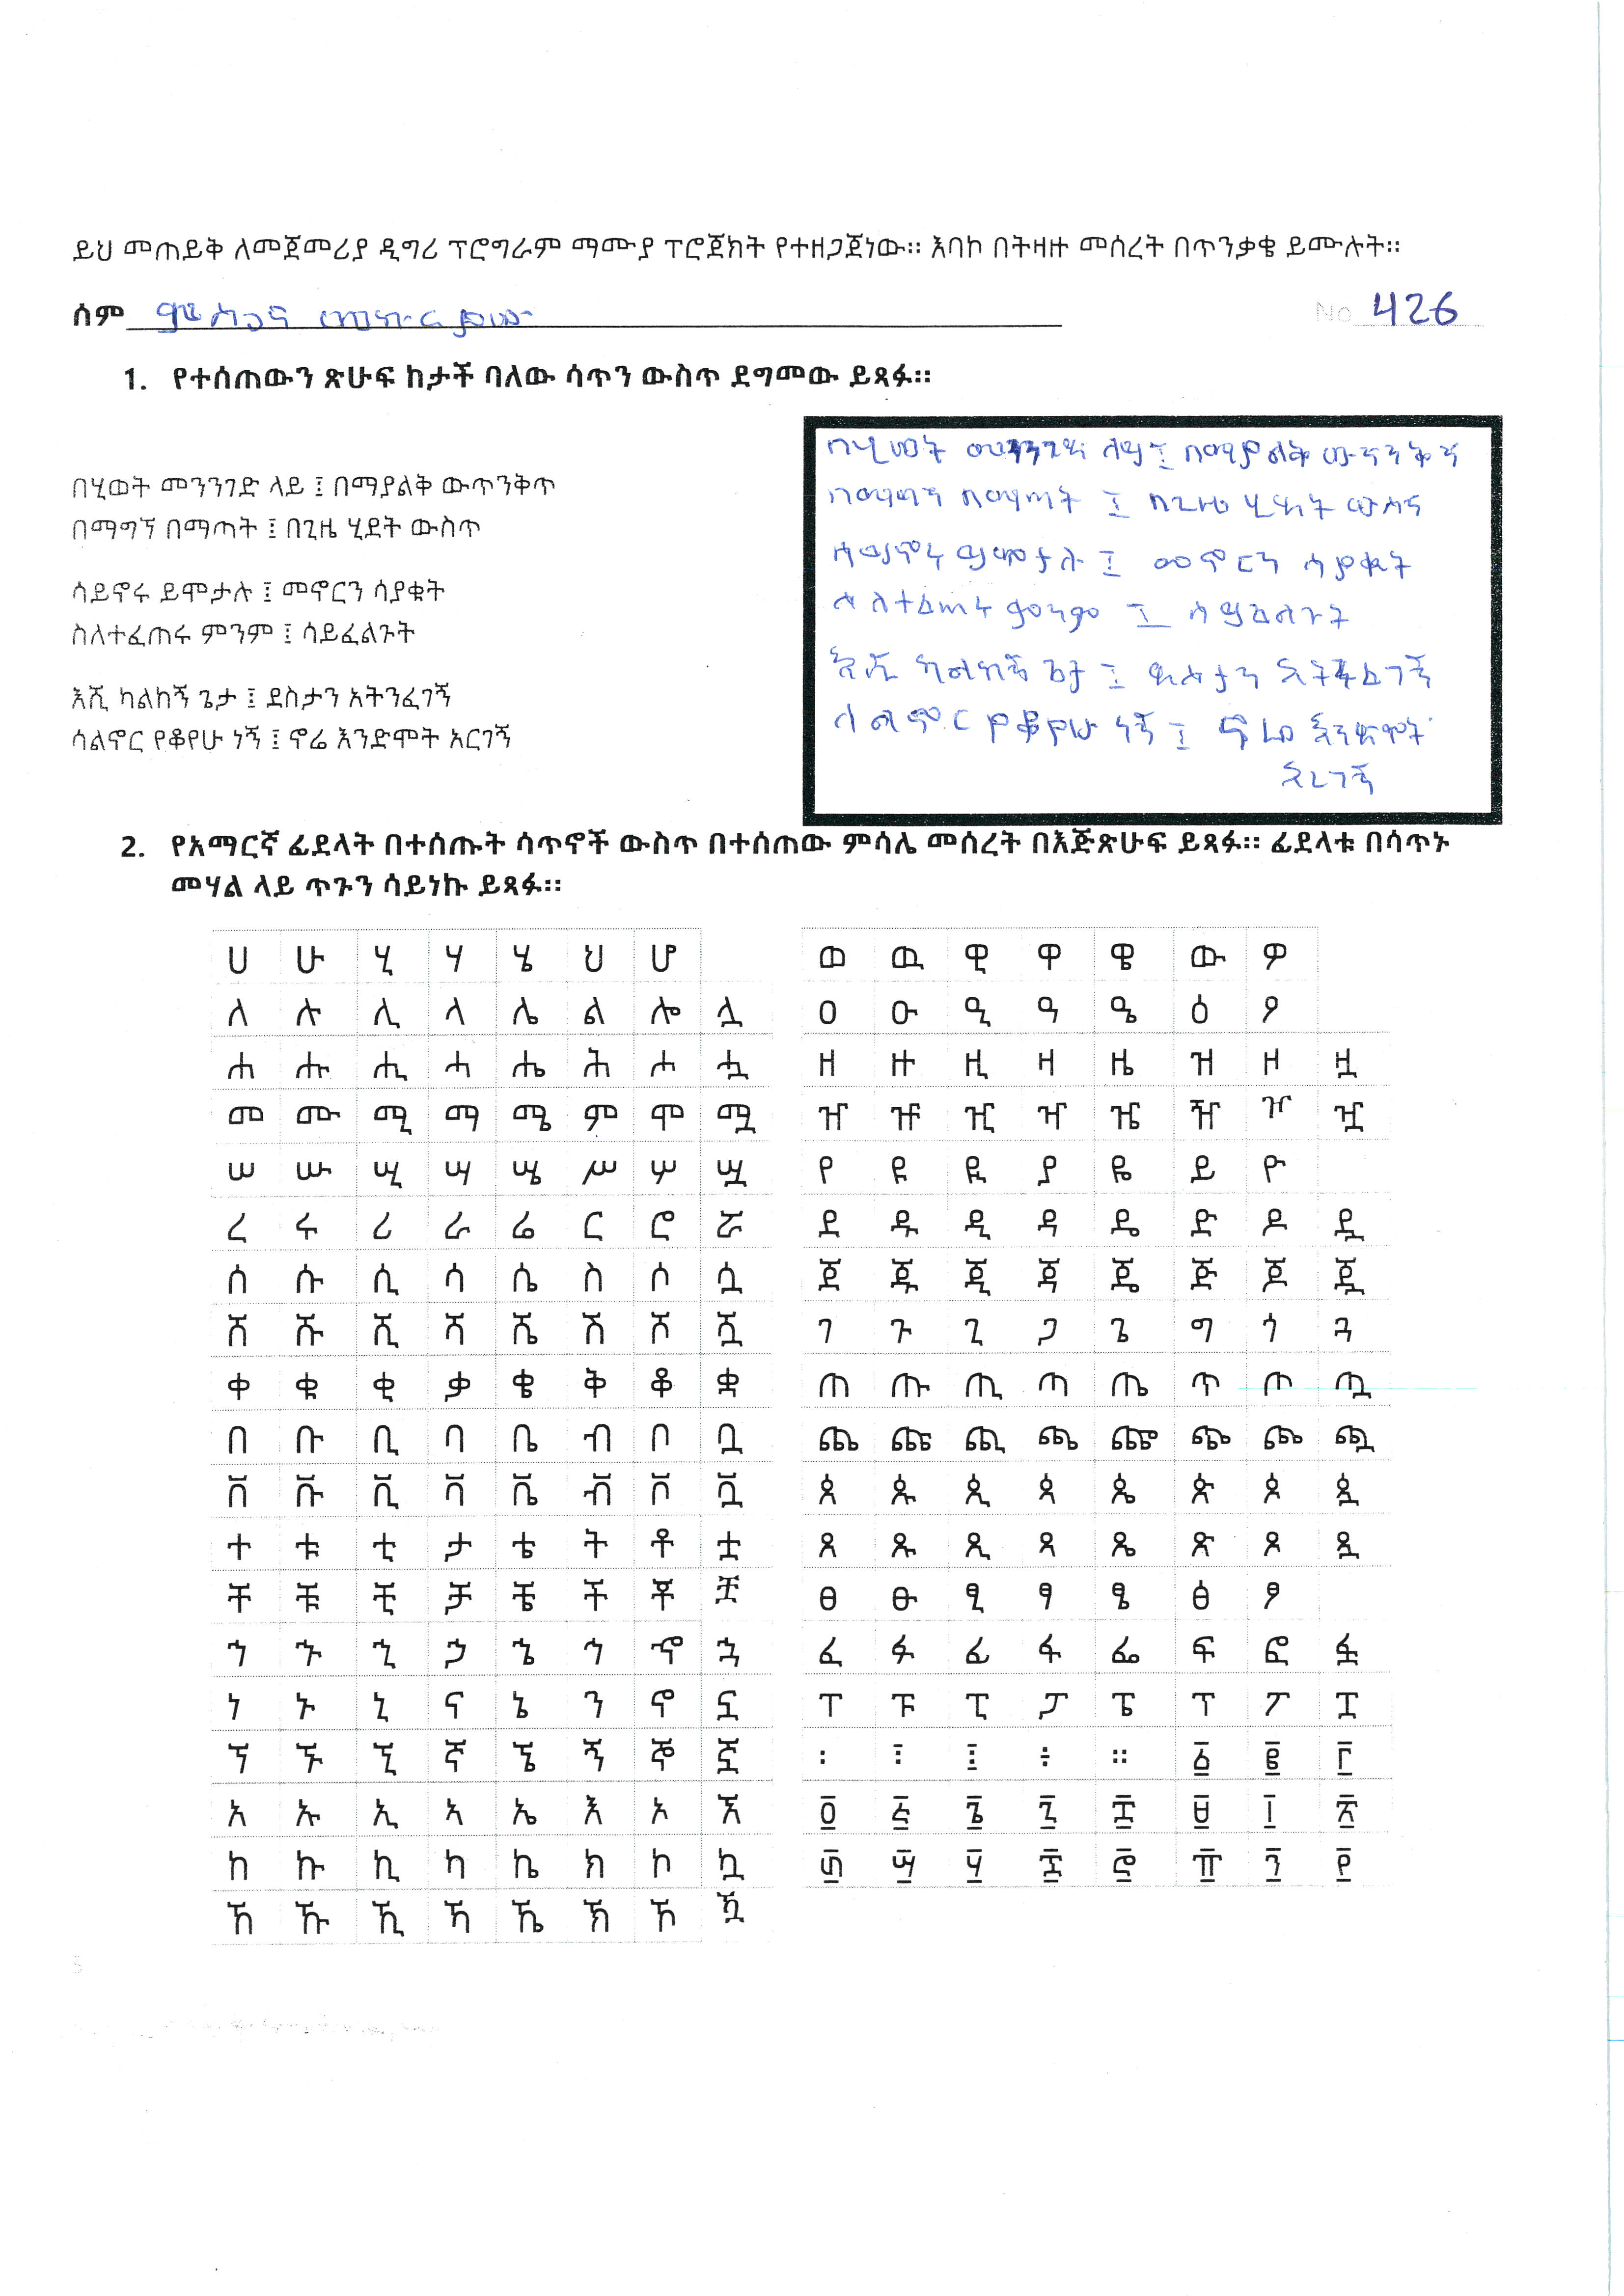 ይህ መጠይቅ ለመጀመሪያ ዲግሪ ፕሮግራም ማሙያ ፕሮጀክት የተዘጋጀነው። እባኮ በትዛዙ መሰረት በጥንቃቄ ይሙሉት።
ሰም ምስጋና No 426
1. የተሰጠውን ጽሁፍ ከታች ባለው ሳጥን ውስጥ ደግመው ይጻፉ።
በሂወት መንንገድ ላይ ፤ በማያልቅ ውጥንቅጥ
በማግኘ በማጣት ፤ በጊዜ ሂደት ውስጥ
ሳይኖሩ ይሞታሉ ፤ መኖርን ሳያቁት
ስለተፈጠሩ ምንም ፤ ሳይፈልጉት
እሺ ካልከኝ ጌታ ፤ ደስታን አትንፈገኝ
ሳልኖር የቆየሁ ነኝ ፤ ኖሬ እንድሞት አርገኝ
በሂወት መንገድ ላይ ፤ በማያልቅ
በማግኘ በማጣት ፤ በጊዜ ሂደት ውስጥ
ሳይኖሩ ይሞታሉ ፤ መኖርን ሳያቁት
ስለተፈጠሩ ምንም ፤ ሳይፈልጉት
እሺ ካልከኝ ጌታ ፤ ደስታን አትንፈገኝ
ሳልኖር የቆየሁ ነኝ ፤ ኖሬ እንድሞት
አረገኝ
2. የአማርኛ ፊደላት በተሰጡት ሳጥኖች ውስጥ በተሰጠው ምሳሌ መሰረት በእጅጽሁፍ ይጻፉ። ፊደላቱ በሳጥኑ
መሃል ላይ ጥጉን ሳይነኩ ይጻፉ።
ሀ ሁ ሂ ሃ ሄ ህ ሆ
ለ ሉ ሊ ላ ሌ ል ሎ ሏ
ሐ ሑ ሒ ሓ ሔ ሕ ሖ ሗ
መ ሙ ሚ ማ ሜ ም ሞ ሟ
ሠ ሡ ሢ ሣ ሤ ሥ ሦ ሧ
ረ ሩ ሪ ራ ሬ ር ሮ ሯ
ሰ ሱ ሲ ሳ ሴ ስ ሶ ሷ
ሸ ሹ ሺ ሻ ሼ ሽ ሾ ሿ
ቀ ቁ ቂ ቃ ቄ ቅ ቆ ቋ
በ ቡ ቢ ባ ቤ ብ ቦ ቧ
ቨ ቩ ቪ ቫ ቬ ቭ ቮ ቯ
ተ ቱ ቲ ታ ቴ ት ቶ ቷ
ቸ ቹ ቺ ቻ ቼ ች ቾ ቿ
ኀ ኁ ኂ ኃ ኄ ኅ ኆ ኋ
ነ ኑ ኒ ና ኔ ን ኖ ኗ
ኘ ኙ ኚ ኛ ኜ ኝ ኞ ኟ
አ ኡ ኢ ኣ ኤ እ ኦ ኧ
ከ ኩ ኪ ካ ኬ ክ ኮ ኳ
ኸ ኹ ኺ ኻ ኼ ኽ ኾ ዃ
ወ ዉ ዊ ዋ ዌ ው ዎ
ዐ ዑ ዒ ዓ ዔ ዕ ዖ
ዘ ዙ ዚ ዛ ዜ ዝ ዞ ዟ
ዠ ዡ ዢ ዣ ዤ ዥ ዦ ዧ
የ ዩ ዪ ያ ዬ ይ ዮ
ደ ዱ ዲ ዳ ዴ ድ ዶ ዷ
ጀ ጁ ጂ ጃ ጄ ጅ ጆ ጇ
ገ ጉ ጊ ጋ ጌ ግ ጎ ጓ
ጠ ጡ ጢ ጣ ጤ ጥ ጦ ጧ
ጨ ጩ ጪ ጫ ጬ ጭ ጮ ጯ
ጰ ጱ ጲ ጳ ጴ ጵ ጶ ጷ
ጸ ጹ ጺ ጻ ጼ ጽ ጾ ጿ
ፀ ፁ ፂ ፃ ፄ ፅ ፆ
ፈ ፉ ፊ ፋ ፌ ፍ ፎ ፏ
ፐ ፑ ፒ ፓ ፔ ፕ ፖ ፗ
፡ ፤ ፧ ፥ ። ፩ ፪ ፫
፬ ፭ ፮ ፯ ፰ ፱ ፲ ፳
፴ ፵ ፶ ፷ ፸ ፹ ፺ ፻